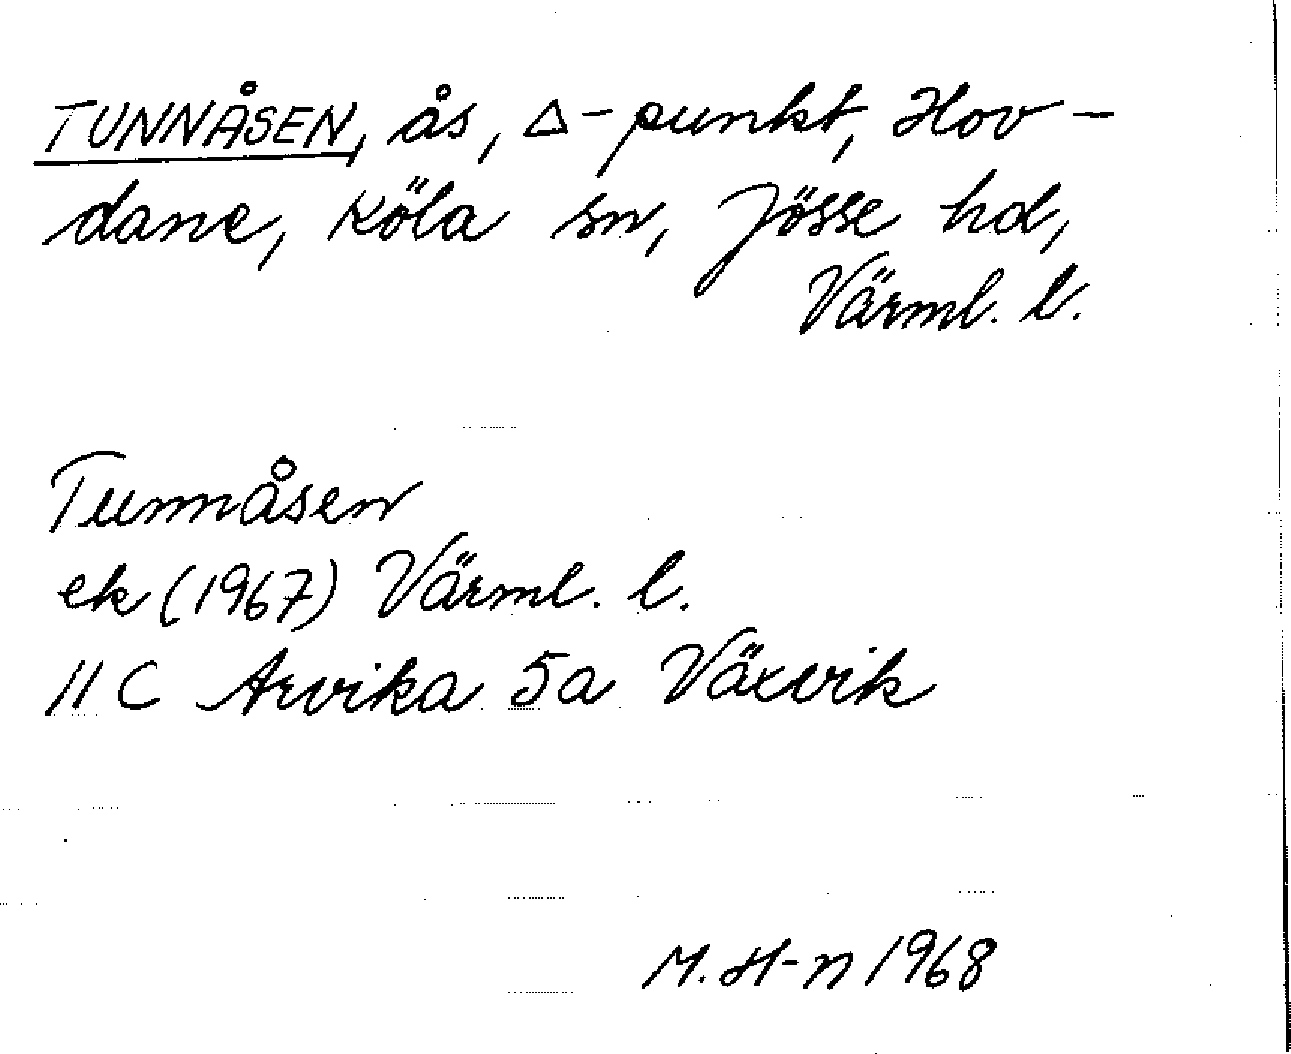 TUNNÅSEN, ås, △-punkt, Hov-
dane, Köla sn, Jösse hd,
Värml. l.
Tunnåsen
ek (1967) Värml. l.
11 C Arvika 5a Växvik
M. H-n 1968